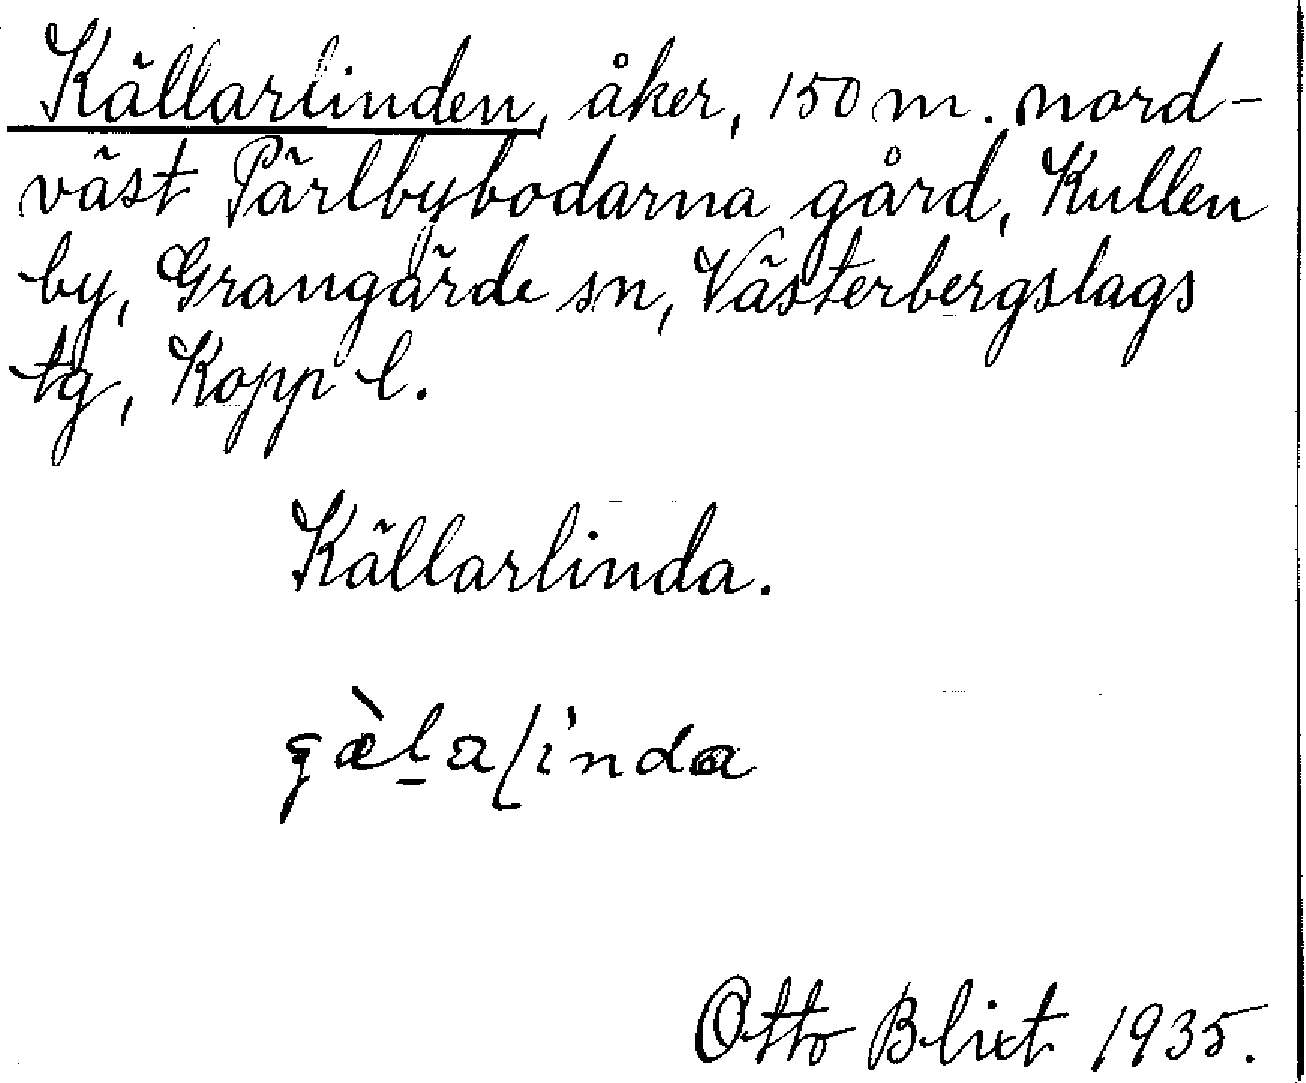 Källarlinden, åker, 150 m. nord-
väst Pärlbybodarna gård, Kullen
by, Grangärde sn, Västerbergslags
tg, Kopp l.
Källarlinda.
Otto Blixt 1935.